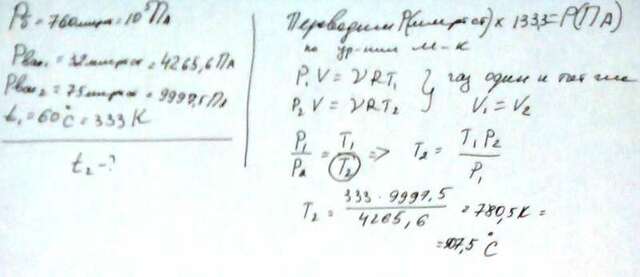 P₀ = 760 мм рт ст = 10⁵ Па
Pвак₁ = 32 мм рт ст = 4265,6 Па
Pвак₂ = 75 мм рт ст = 9997,5 Па
t₁ = 60°C = 333 K
t₂ - ?
Переводим P(мм рт ст) × 133,3 = P(ПА)
по ур-нию М-К
P₁V = νRT₁
P₂V = νRT₂ } газ один и тот же
V₁ = V₂
P₁/P₂ = T₁/T₂ => T₂ = T₁P₂/P₁
T₂ = 333 · 9997,5 / 4265,6 = 780,5 K =
= 507,5 °C